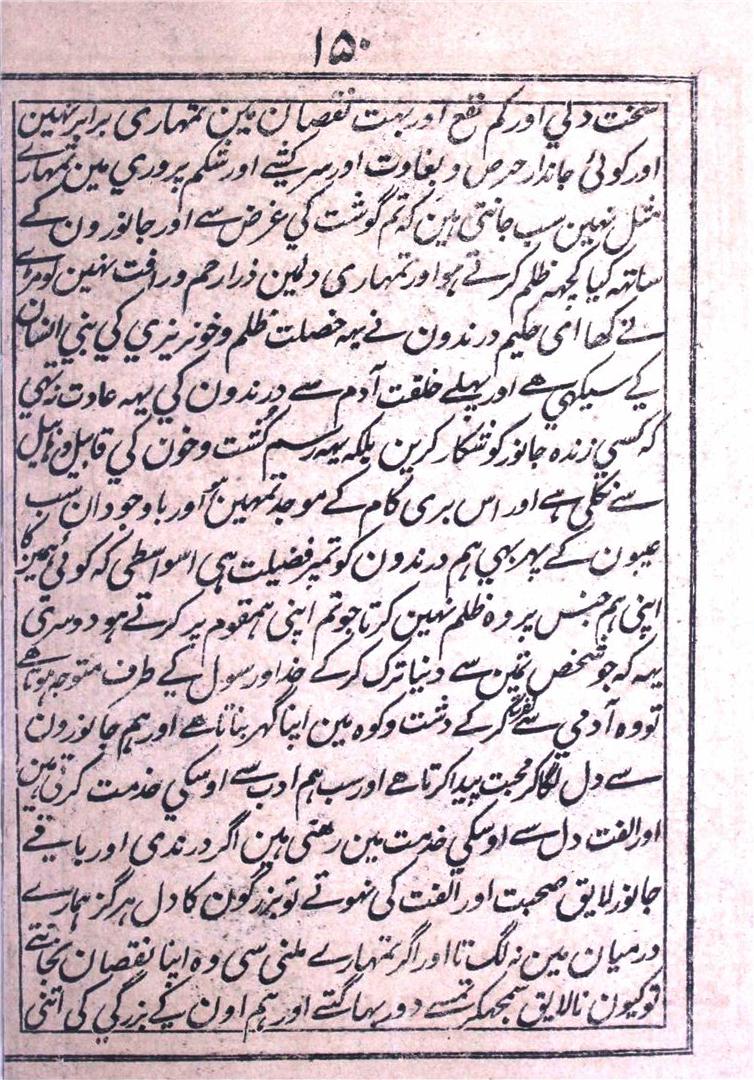 ۱۵۰
سخت دلي اور کم نفع اور بہت نقصان مین تمہاری برابر نہین
اور کوئی جاندار حرص و بغاوت اور سرکشے اور شکم پروري مین تمہارے
مثل نہین سب جانتی ہین کہ تم گوشت کي غرض سے اور جانورون کے
ساتہہ کیا کچہہ ظلم کرتے ہو اور تمہاری دلمین ذرا رحم و رافت نہین لومڑے
نے کہا ای حکیم درندون نے یہہ خصلت ظلم و خونریزي کي بنی انسان
کے سیکہي ھے اور پہلے خلقت آدم سے درندون کي یہہ عادت نہ تہي
کہ کسي زندہ جانور کو شکار کرین بلکہ یہہ رسم کشت و خون کي قابیل و ہابیل
سے نکلی ہے اور اس بری کام کے موجد تمہین ہو اور باوجود ان سب
عیبون کے پہر بہي ہم درندون کو تمپر فضیلت ہی اسواسطی کہ کوئی ہمین کا
اپنی ہم جنس پر وہ ظلم نہین کرتا جو تم اپنی ہمقوم پر کرتے ہو دوسری
یہہ کہ جو شخص تمین سے دنیا ترک کرکے خدا و رسول کے طرف متوجہ ہوتا ھے
تو وہ آدمي سے نفرت کرکے دشت و کوہ مین اپنا گہر بناتا ھے اور ہم جانورون
سے دل لگا کر محبت پیدا کرتا ھے اور سب ہم ادب سے اوسکي خدمت کرتی ہین
اور الفت دل سے اوسکي خدمت مین رھتی ہین اگر درندی اور باقے
جانور لایق صحبت اور الفت کی نہوتے تو بزرگون کا دل ہرگز ہمارے
درمیان مین نہ لگتا اور اگر تمہارے ملنی سی وہ اپنا نقصان نجانتے
تو کیون نالایق سمجہکر تمسے دور بہاگتے اور ہم اون کے بزرگي کی اتنی